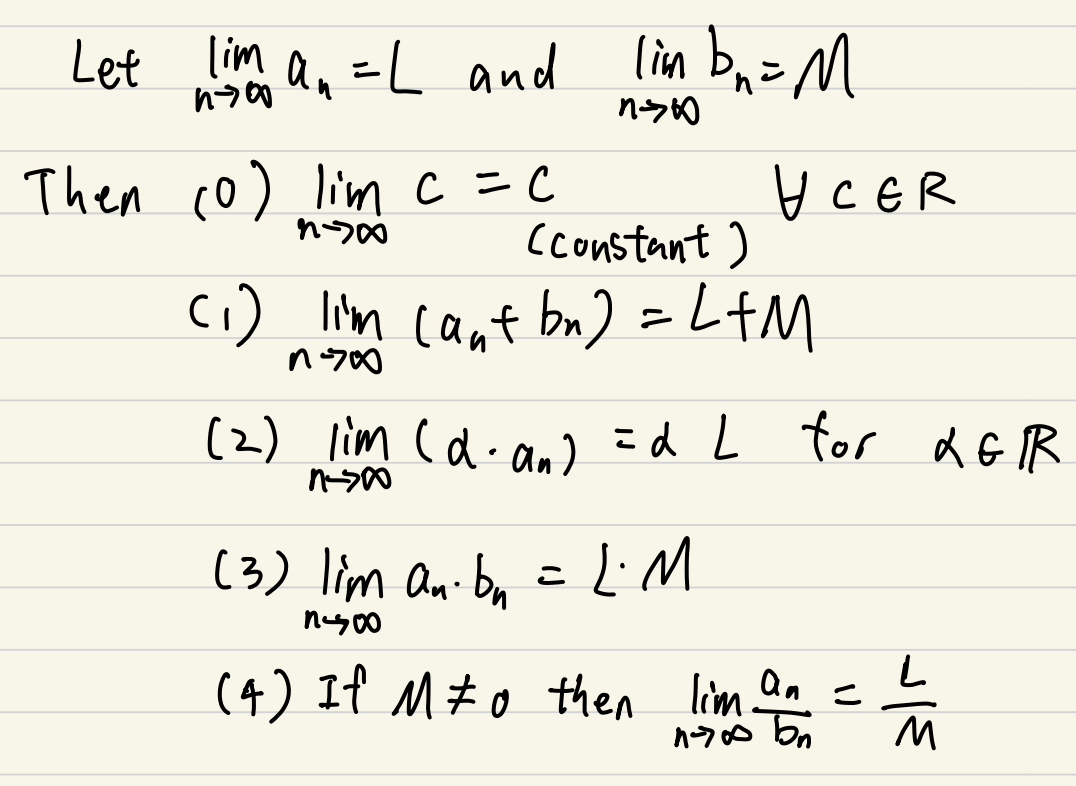 Let lim_{n→∞} a_n = L and lim_{n→∞} b_n = M
Then (0) lim_{n→∞} c = c ∀ c ∈ R
(constant)
(1) lim_{n→∞} (a_n + b_n) = L + M
(2) lim_{n→∞} (α · a_n) = α L for α ∈ ℝ
(3) lim_{n→∞} a_n · b_n = L · M
(4) If M ≠ 0 then lim_{n→∞} a_n/b_n = L/M